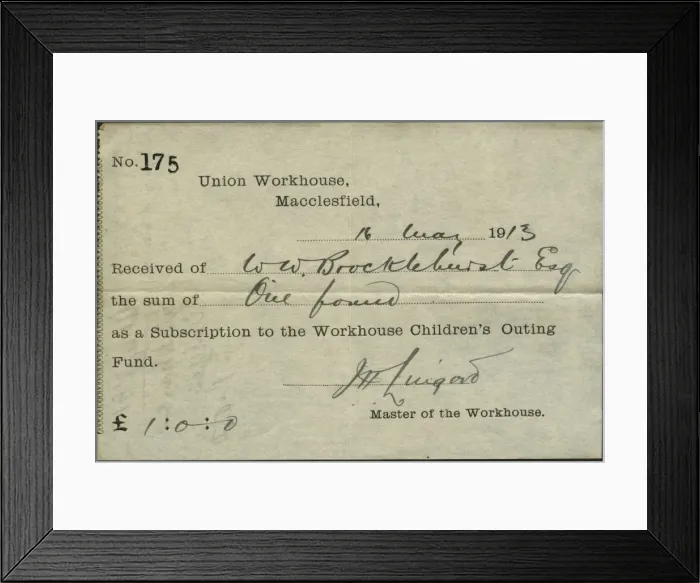 No. 175
Union Workhouse,
Macclesfield,
16 May 1913
Received of W. W. Brocklehurst Esq
the sum of One pound
as a Subscription to the Workhouse Children's Outing
Fund.
JH Lingard
Master of the Workhouse.
£ 1:0:0